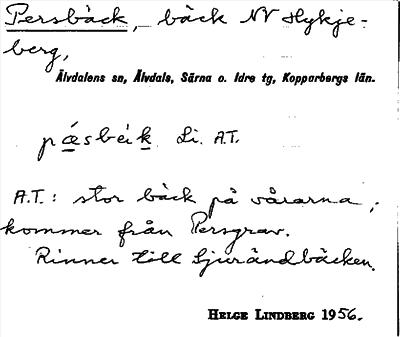 Persbäck, bäck NV Hykje-
berg,
Älvdalens sn, Älvdals, Särna o. Idre tg, Kopparbergs län.
pǽsbèik Li. A.T.
A.T.: stor bäck på vårarna,
kommer från Persgrav.
Rinner till Ljurändbäcken.
HELGE LINDBERG 1956.